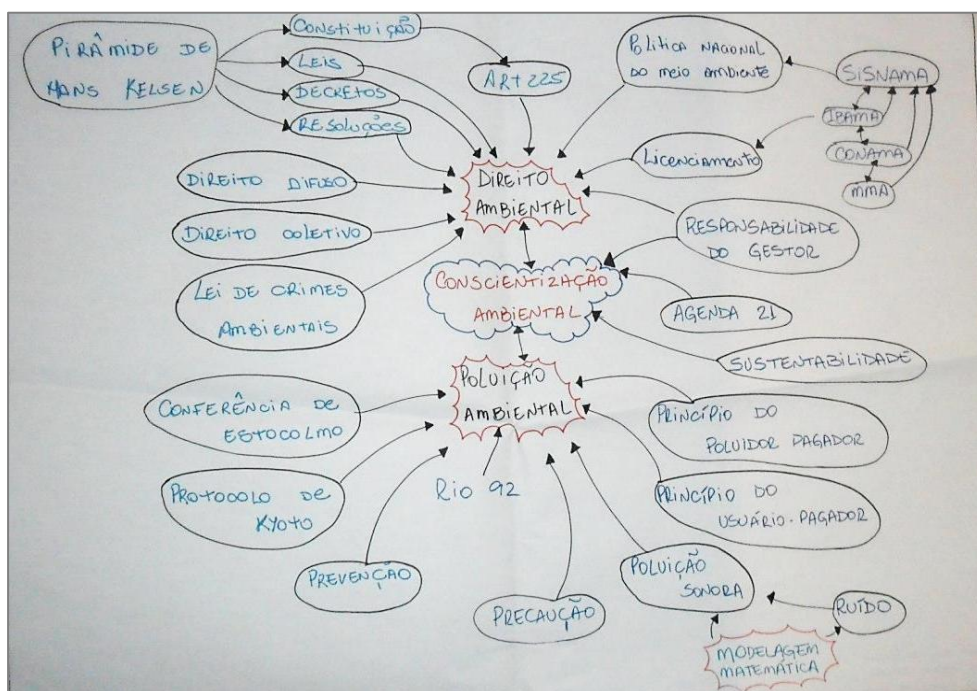 PIRÂMIDE DE
HANS KELSEN
CONSTITUIÇÃO
LEIS
DECRETOS
RESOLUÇÕES
ART 225
POLÍTICA NACIONAL
DO MEIO AMBIENTE
SISNAMA
IBAMA
CONAMA
MMA
LICENCIAMENTO
DIREITO DIFUSO
DIREITO COLETIVO
LEI DE CRIMES
AMBIENTAIS
DIREITO
AMBIENTAL
RESPONSABILIDADE
DO GESTOR
CONSCIENTIZAÇÃO
AMBIENTAL
AGENDA 21
SUSTENTABILIDADE
POLUIÇÃO
AMBIENTAL
CONFERÊNCIA DE
ESTOCOLMO
PROTOCOLO DE
KYOTO
RIO 92
PRINCÍPIO DO
POLUIDOR PAGADOR
PRINCÍPIO DO
USUÁRIO-PAGADOR
PREVENÇÃO
PRECAUÇÃO
POLUIÇÃO
SONORA
RUÍDO
MODELAGEM
MATEMÁTICA